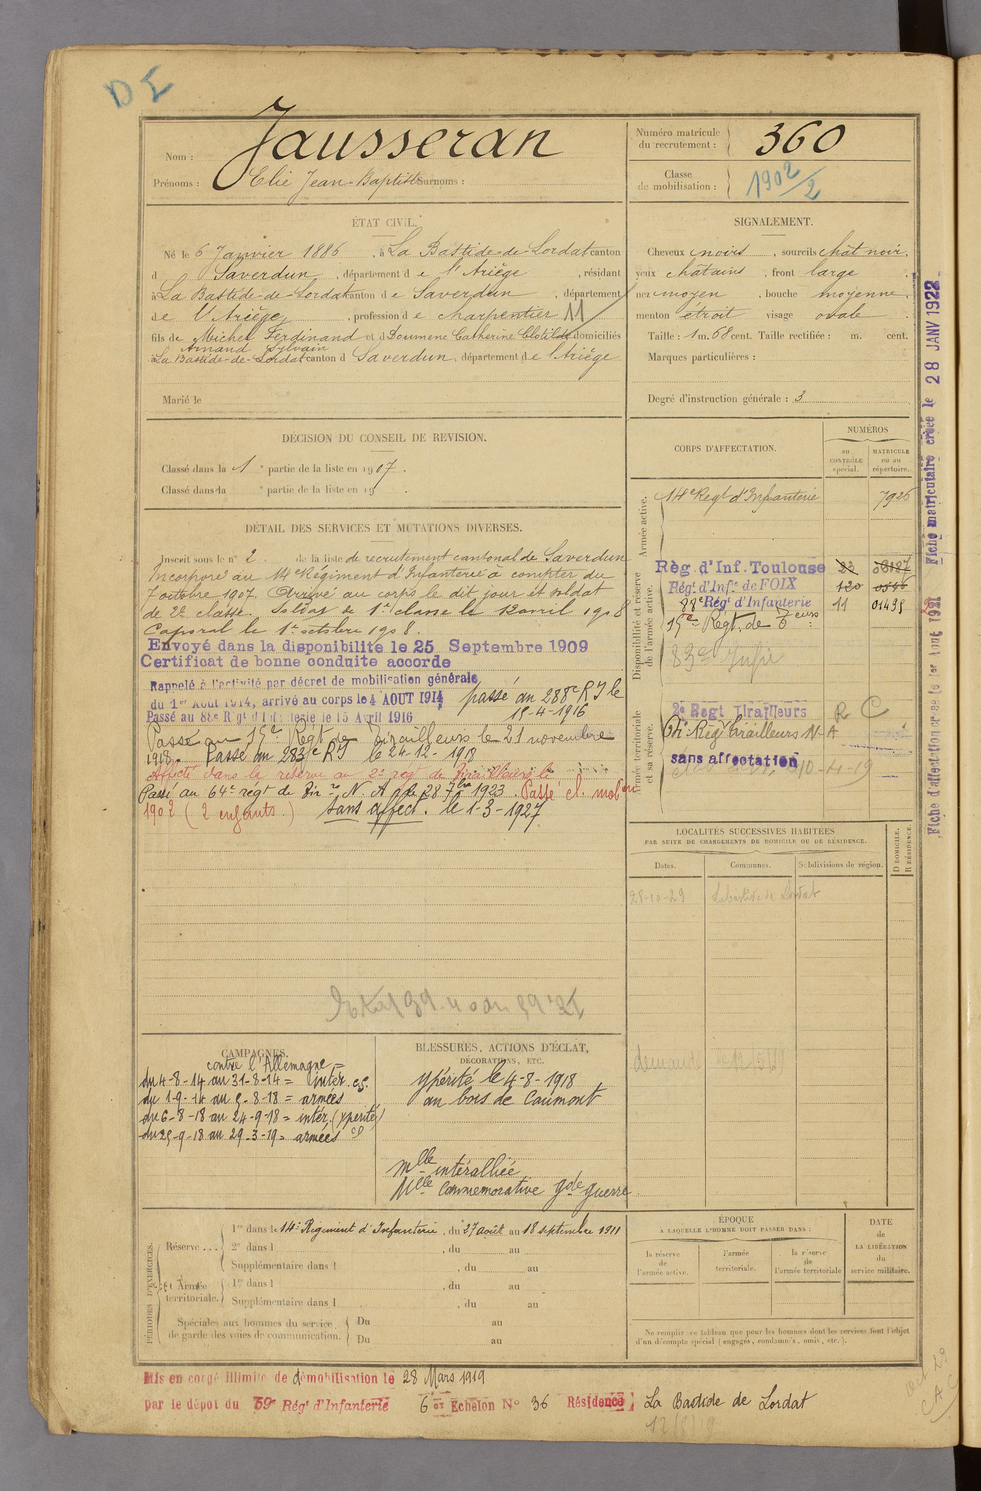 DI
Nom : Jausseran
Prénoms : Elie Jean-Baptiste Surnoms :
Numéro matricule du recrutement : 360
Classe de mobilisation : 1902/2
ÉTAT CIVIL.
Né le 6 Janvier 1886, à La Bastide-de-Lordat canton
d Saverdun, département de l'Ariège, résidant
à La Bastide-de-Lordat canton de Saverdun, département
de l'Ariège, profession de charpentier 11
fils de Michel Ferdinand et d Doumenc Catherine Clotilde domiciliés
Armand Sylvain
à La Bastide-de-Lordat canton d Saverdun, département de l'Ariège
Marié le
SIGNALEMENT.
Cheveux noirs, sourcils chât noir,
yeux châtains, front large,
nez moyen, bouche moyenne,
menton étroit visage ovale
Taille : 1 m. 68 cent. Taille rectifiée : m. cent.
Marques particulières :
Degré d'instruction générale : 3
DÉCISION DU CONSEIL DE REVISION.
Classé dans la 1e partie de la liste en 1907.
Classé dans la e partie de la liste en 19 .
CORPS D'AFFECTATION.
NUMÉROS
AU CONTRÔLE spécial.
MATRICULE ou au répertoire.
Armée active.
14e Regt d'Infanterie 7926
Disponibilité et réserve de l'armée active.
Règ. d'Inf. Toulouse
Régt d'Infie de FOIX 120
88e Régt d'Infanterie 11 01438
15e Regt de Teurs
83e Infie
Armée territoriale et sa réserve.
2e Regt Tirailleurs R C
64e Regt tirailleurs N-A
sans affectation
10-4-19
DÉTAIL DES SERVICES ET MUTATIONS DIVERSES.
Inscrit sous le n° 2 de la liste de recrutement cantonal de Saverdun
Incorporé au 14e Régiment d'Infanterie à compter du
7 octobre 1907. Arrivé au corps le dit jour et soldat
de 2e classe. Soldat de 1re classe le 12 avril 1908
Caporal le 1er octobre 1908.
Envoyé dans la disponibilité le 25 Septembre 1909
Certificat de bonne conduite accordé
Rappelé à l'activité par décret de mobilisation générale
du 1er Août 1914, arrivé au corps le 4 AOUT 1914 passé au 288e RI le
Passé au 88e Rgt d'Infanterie le 15 Avril 1916 15-4-1916
Passé au 15e Regt de Tirailleurs le 21 novembre
1918. Passé au 283e RI le 24-12-1918
Affecté dans la réserve au 2e reg de
Passé au 64e regt de Tirrs N. A le 28 7bre 1923. Passé cl. mobon
1902 (2 enfants.) Sans affect. le 1-3-1927
LOCALITÉS SUCCESSIVES HABITÉES
PAR SUITE DE CHANGEMENTS DE DOMICILE OU DE RÉSIDENCE.
Dates. Communes. Subdivisions de région. D DOMICILE. R RÉSIDENCE.
28-10-29 Labastide de Lordat
CAMPAGNES.
contre l'Allemagne =
du 4-8-14 au 31-8-14 = intér. cs.
du 1-9-14 au 5-8-18 = armées
du 6-8-18 au 24-9-18 = intér. (ypérité)
du 25-9-18 au 29-3-19 = armées
BLESSURES, ACTIONS D'ÉCLAT,
DÉCORATIONS, ETC.
ypérité le 4-8-1918
au bois de Caumont
Mlle interalliée
Mlle Commemorative gde guerre
PÉRIODES D'EXERCICES.
Réserve...
1re dans le 14e Régiment d'Infanterie, du 27 août au 18 septembre 1911
2e dans l , du au
Supplémentaire dans l , du au
Armée territoriale.
1re dans l , du au
Supplémentaire dans l , du au
Spéciales aux hommes du service de garde des voies de communication.
Du au
Du au
ÉPOQUE
À LAQUELLE L'HOMME DOIT PASSER DANS :
la réserve de l'armée active.
l'armée territoriale.
la réserve de l'armée territoriale
DATE de LA LIBÉRATION du service militaire.
Ne remplir ce tableau que pour les hommes dont les services font l'objet
d'un décompte spécial (engagés, condamnés, omis, etc.).
Mis en congé illimité de démobilisation le 28 Mars 1919
par le dépôt du 59e Régt d'Infanterie 6e Echelon N° 36 Résidence La Bastide de Lordat
Fiche matriculaire créée le 28 JANV 1922
Fiche d'affectation créée le 1er Août 1921